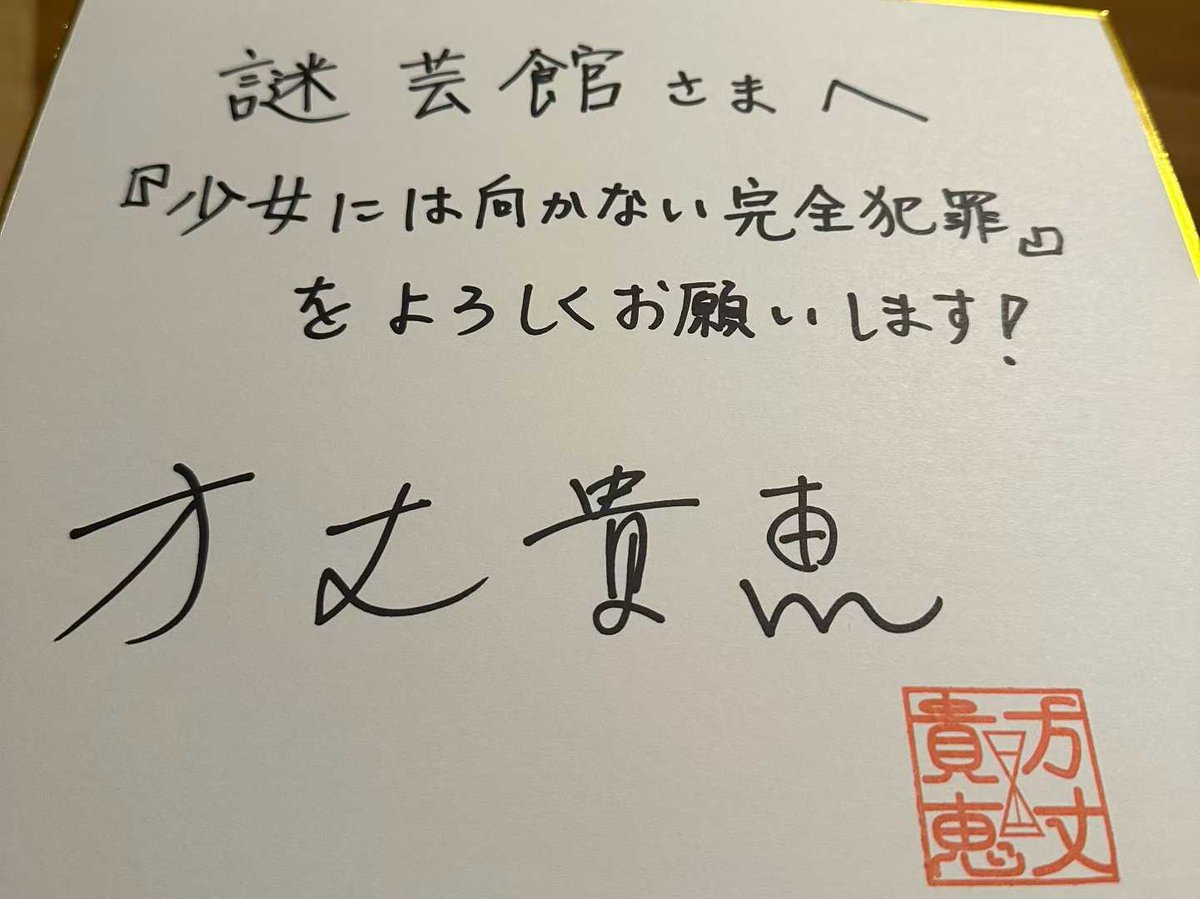 謎芸館さまへ
『少女には向かない完全犯罪』
をよろしくお願いします!
方丈貴恵
方丈
貴恵